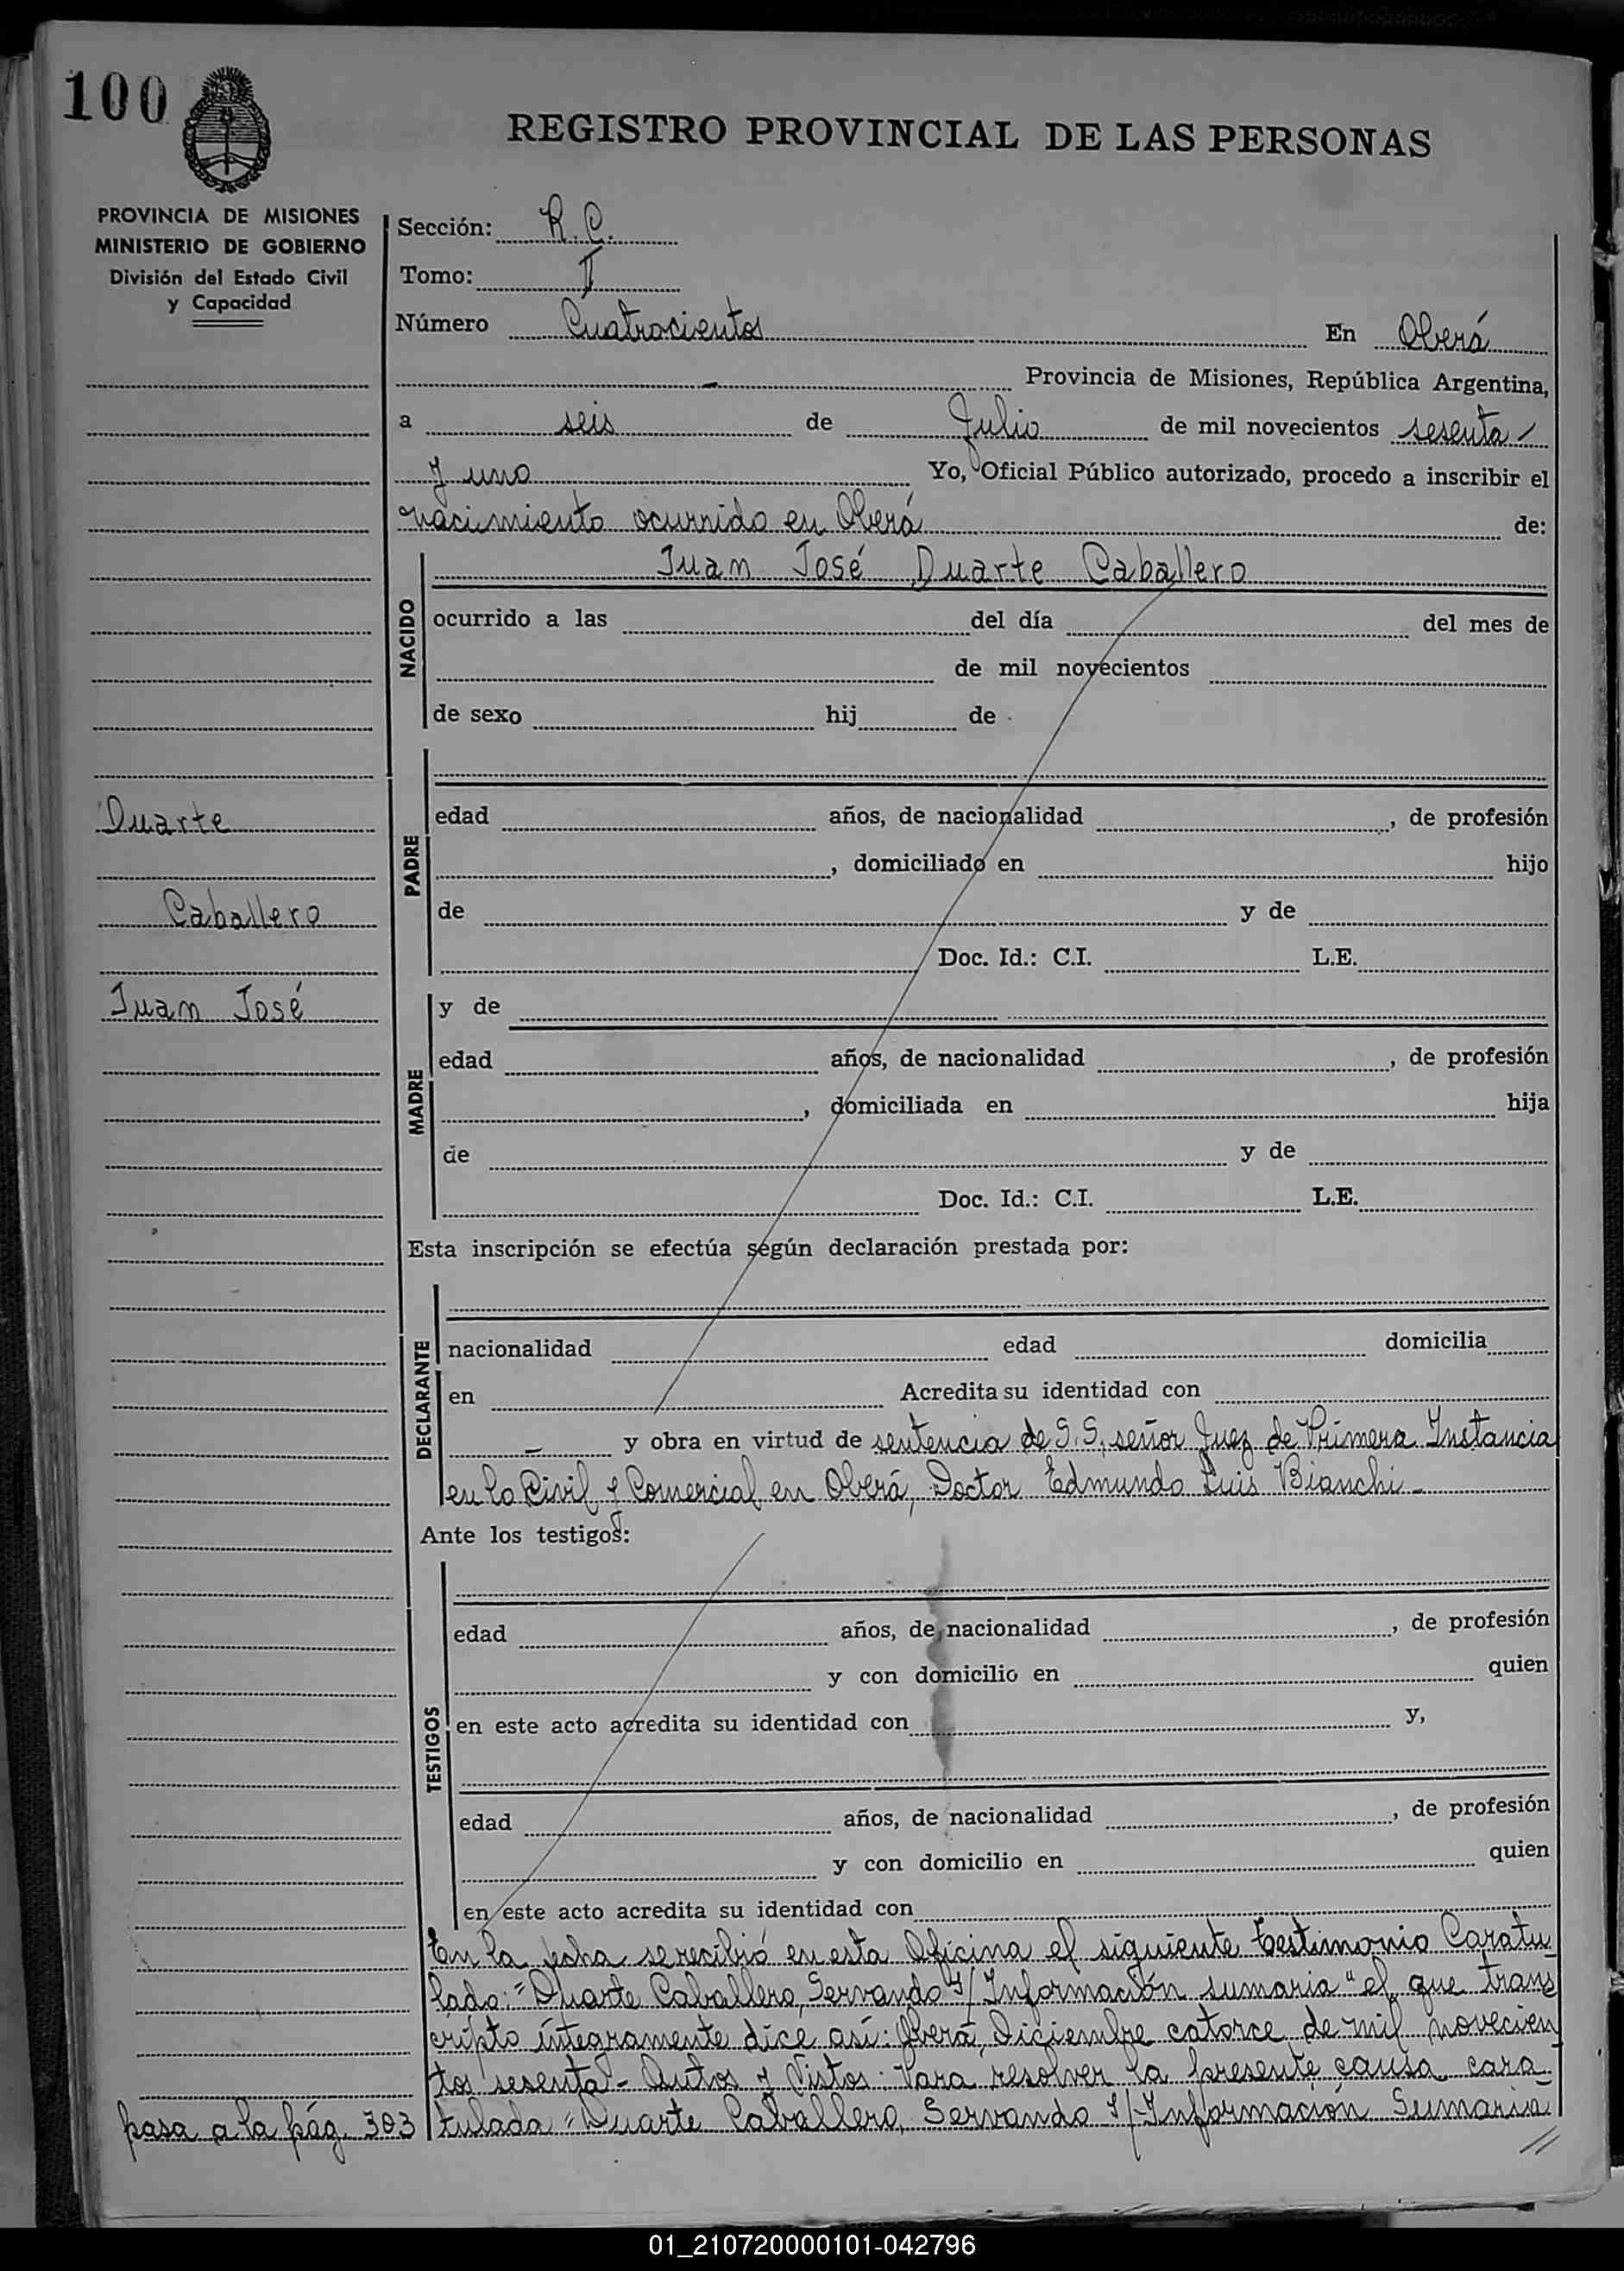 100
REGISTRO PROVINCIAL DE LAS PERSONAS
PROVINCIA DE MISIONES
MINISTERIO DE GOBIERNO
División del Estado Civil
y Capacidad
Sección: R. C.
Tomo: I
Número Cuatrocientos En Oberá
Provincia de Misiones, República Argentina,
a seis de Julio de mil novecientos sesenta
y uno Yo, Oficial Público autorizado, procedo a inscribir el
nacimiento ocurrido en Oberá de:
NACIDO
Juan José Duarte Caballero
ocurrido a las del día del mes de
de mil novecientos
de sexo hij de
PADRE
edad años, de nacionalidad , de profesión
, domiciliado en hijo
de y de
Doc. Id.: C.I. L.E.
Duarte
Caballero
Juan José
MADRE
y de
edad años, de nacionalidad , de profesión
, domiciliada en hija
de y de
Doc. Id.: C.I. L.E.
Esta inscripción se efectúa según declaración prestada por:
DECLARANTE
nacionalidad edad domicilia
en Acredita su identidad con
– y obra en virtud de sentencia de S.S. señor Juez de Primera Instancia
en lo Civil y Comercial en Oberá, Doctor Edmundo Luis Bianchi-
Ante los testigos:
TESTIGOS
edad años, de nacionalidad , de profesión
y con domicilio en quien
en este acto acredita su identidad con y,
edad años, de nacionalidad , de profesión
y con domicilio en quien
en este acto acredita su identidad con
En la fecha se recibió en esta Oficina el siguiente testimonio Caratu
lado: "Duarte Caballero, Servando S/Información sumaria" el que trans
cripto íntegramente dice así: Oberá, Diciembre catorce de mil novecien
tos sesenta - Autos y Vistos: Para resolver la presente causa cara
tulada "Duarte Caballero, Servando S/-Información Sumaria
//
pasa a la pág. 303
01_210720000101-042796